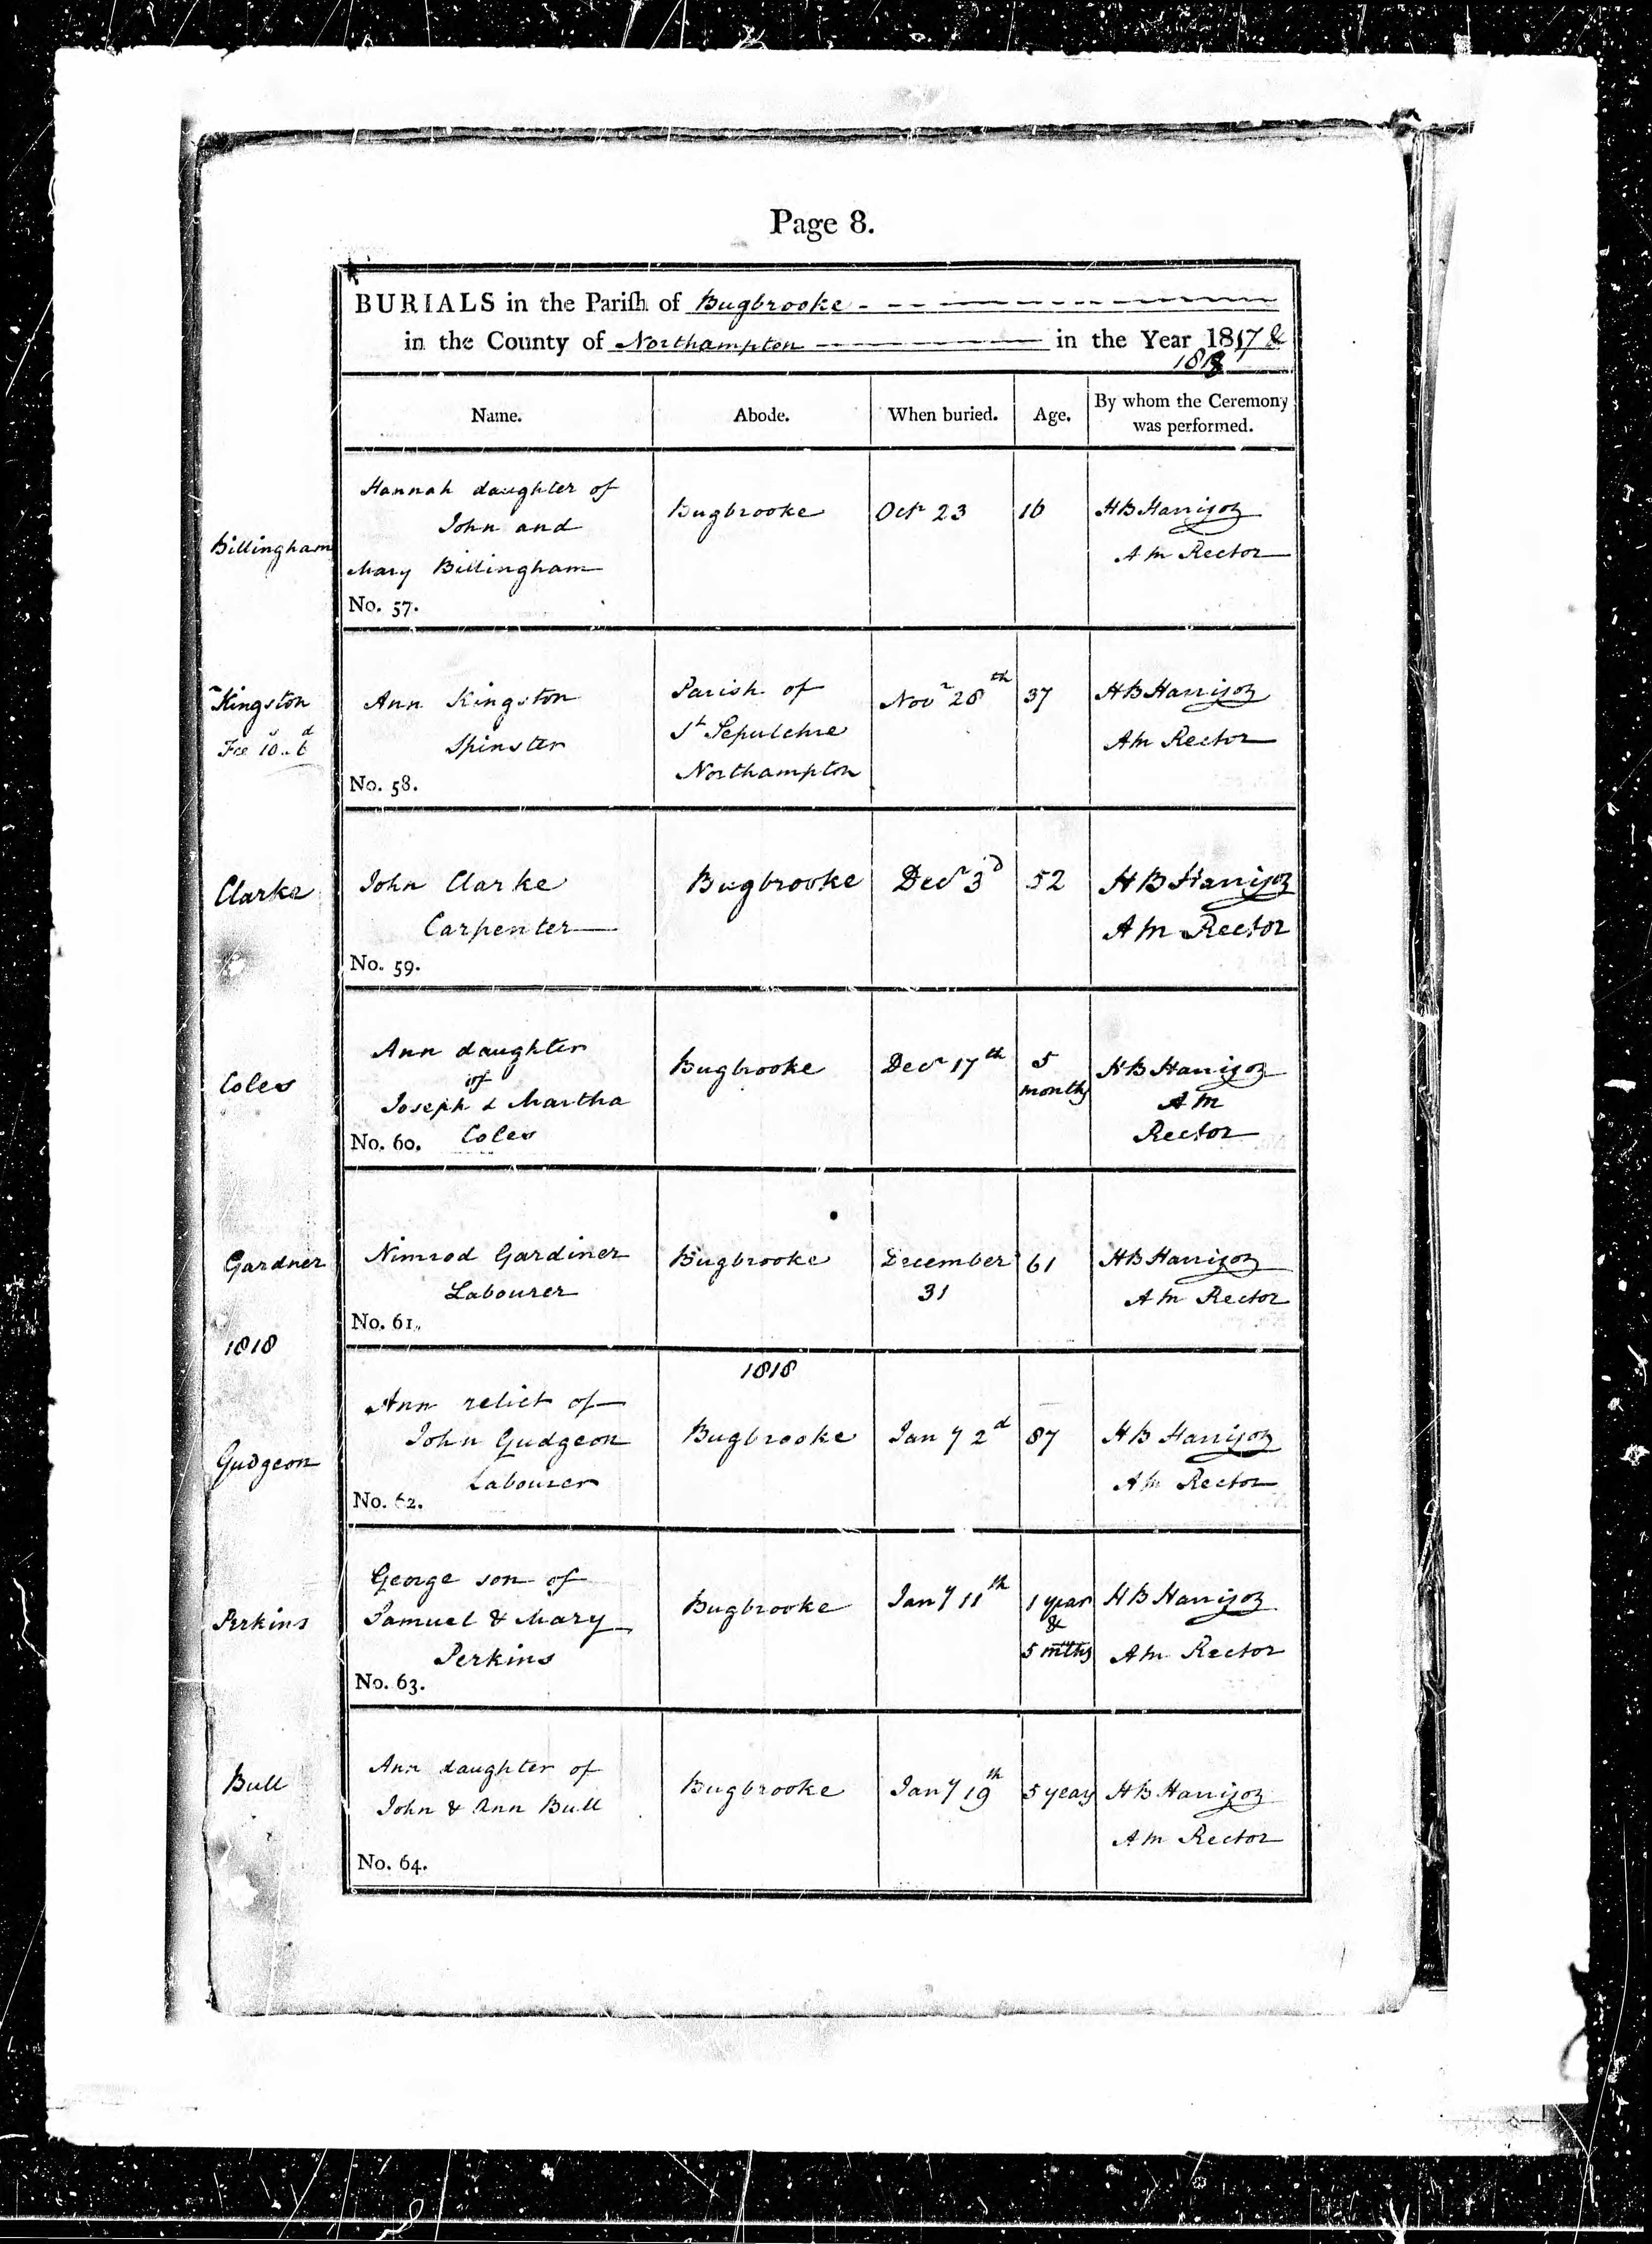 Page 8.
BURIALS in the Parish of Bugbrooke
in the County of Northampton in the Year 1817 &
1818
Name. Abode. When buried. Age. By whom the Ceremony was performed.
Billingham
Hannah daughter of
John and
Mary Billingham
No. 57.
Bugbrooke
Octr 23
16
HB Harrison
AM Rector
Kingston
Fee 10s..6d
Ann Kingston
Spinster
No. 58.
Parish of
St Sepulchre
Northampton
Novr 28th
37
HB Harrison
AM Rector
Clarke
John Clarke
Carpenter
No. 59.
Bugbrooke
Decr 3d
52
HB Harrison
AM Rector
Coles
Ann daughter
of
Joseph & Martha
Coles
No. 60.
Bugbrooke
Decr 17th
5
months
HB Harrison
AM
Rector
Gardner
Nimrod Gardiner
Labourer
No. 61.
Bugbrooke
December
31
61
HB Harrison
AM Rector
1818
1818
Gudgeon
Ann relict of
John Gudgeon
Labourer
No. 62.
Bugbrooke
Jany 2d
87
HB Harrison
AM Rector
Perkins
George son of
Samuel & Mary
Perkins
No. 63.
Bugbrooke
Jany 11th
1 year
&
5 mths
HB Harrison
AM Rector
Bull
Ann daughter of
John & Ann Bull
No. 64.
Bugbrooke
Jany 19th
5 years
HB Harrison
AM Rector